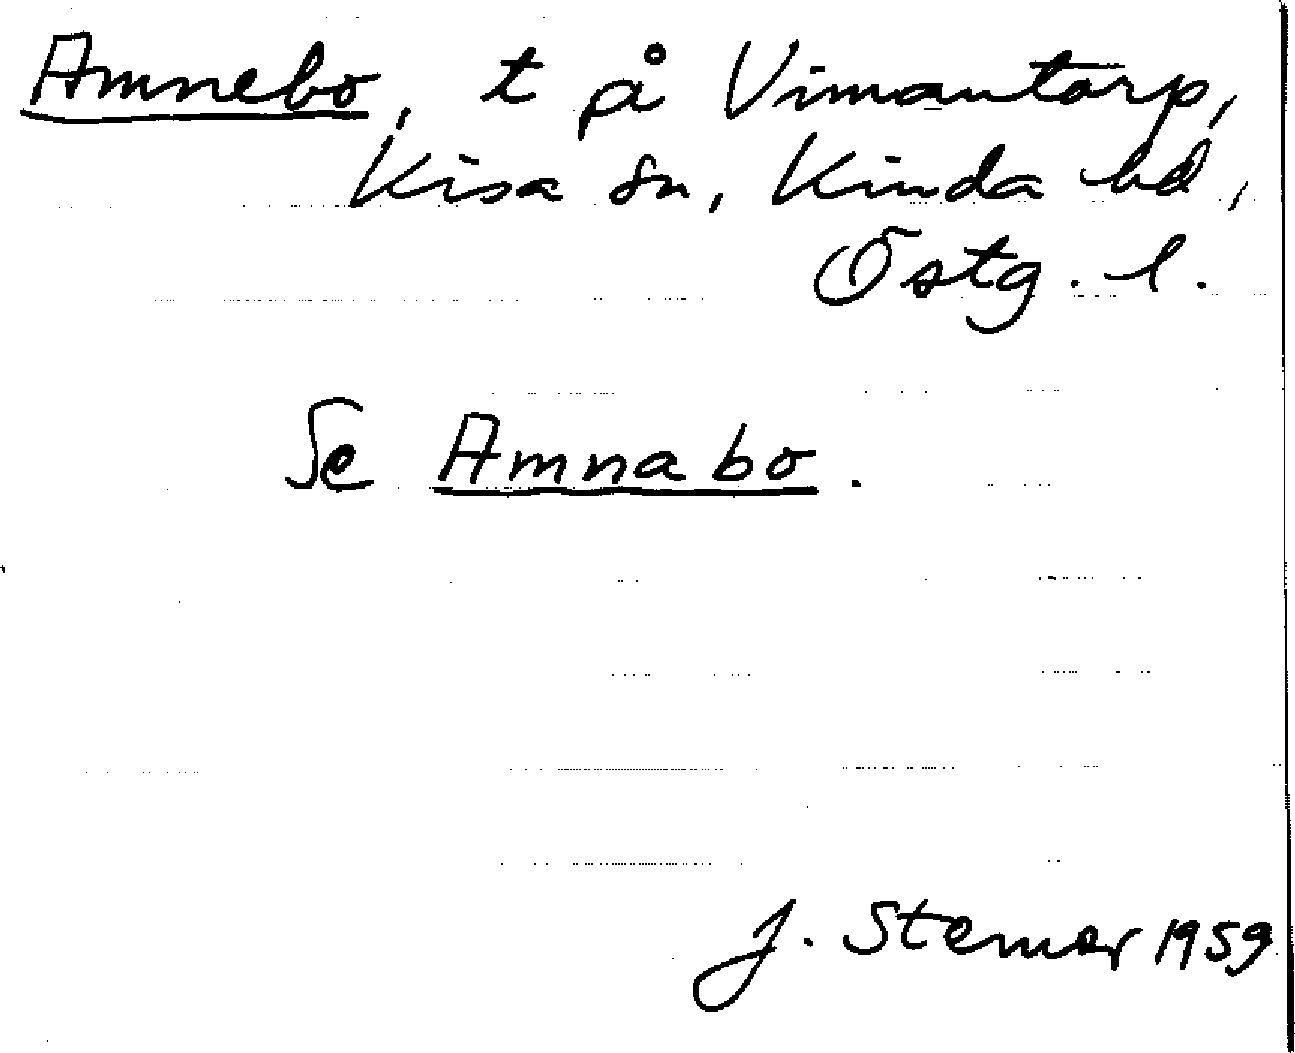 Amnebo, t på Vimantorp,
Kisa sn, Kinda hd,
Östg. l.
Se Amnabo.
J. Stemar 1959